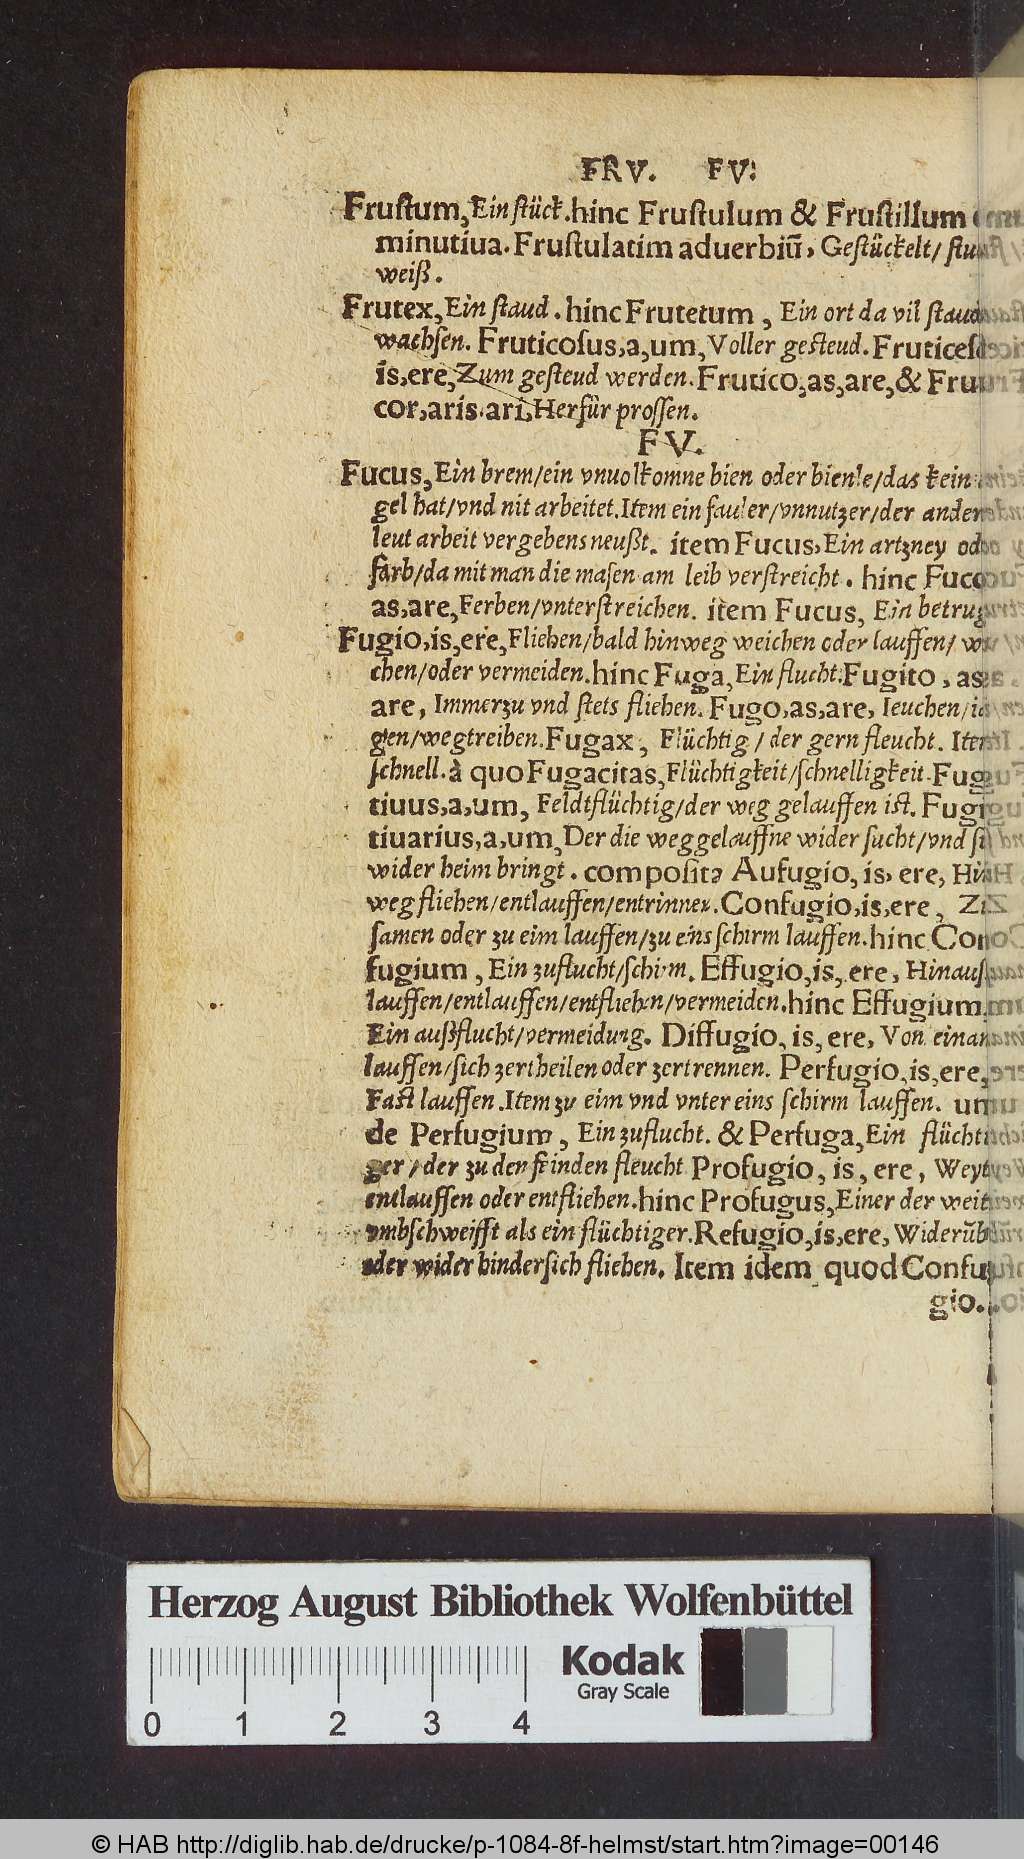 FRV. FV.
Fruſtum, Ein ſtück. hinc Fruſtulum & Fruſtillum
minutiua. Fruſtulatim aduerbiũ, Geſtückelt/
weiß.
Frutex, Ein ſtaud. hinc Frutetum, Ein ort da vil ſtaud
wachſen. Fruticoſus,a,um, Voller geſteud. Fruticeſ
is,ere, Zum geſteud werden. Frutico,as,are,& Fru
cor,aris.ari, Herfür proſſen.
FV.
Fucus, Ein brem/ein vnuolkomne bien oder bienle/das kein
gel hat/vnd nit arbeitet. Item ein fauler/vnnutzer/der ander
leut arbeit vergebens neußt. item Fucus, Ein artzney od
farb/da mit man die maſen am leib verſtreicht. hinc Fuco
as,are, Ferben/vnterſtreichen. item Fucus, Ein betrug
Fugio,is,ere, Fliehen/bald hinweg weichen oder lauffen/
chen/oder vermeiden. hinc Fuga, Ein flucht. Fugito, as
are, Immerzu vnd ſtets fliehen. Fugo,as,are, Ieuchen/
gen/wegtreiben. Fugax, Flüchtig/ der gern fleucht. Item
ſchnell. à quo Fugacitas, Flüchtigkeit/ſchnelligkeit. Fugi
tiuus,a,um, Feldtflüchtig/der weg gelauffen iſt. Fugi
tiuarius,a,um, Der die weggelauffne wider ſucht/vnd ſi
wider heim bringt. compoſita Aufugio, is, ere, Hin
weg fliehen/entlauffen/entrinnen. Confugio,is,ere, Zu
ſamen oder zu eim lauffen/zu eins ſchirm lauffen. hinc Con
fugium, Ein zuflucht/ſchirm. Effugio,is, ere, Hinauß
lauffen/entlauffen/entfliehen/vermeiden. hinc Effugium
Ein außflucht/vermeidung. Diffugio, is, ere, Von einan
lauffen/ſich zertheilen oder zertrennen. Perfugio,is,ere,
Faſt lauffen. Item zu eim vnd vnter eins ſchirm lauffen. un
de Perfugium, Ein zuflucht. & Perfuga, Ein flüchti
ger/der zu den feinden fleucht Profugio, is, ere, Weyt
entlauffen oder entfliehen. hinc Profugus, Einer der weit
vmbſchweifft als ein flüchtiger. Refugio,is,ere, Widerũb
oder wider hinderſich fliehen. Item idem quod Confu
gio.
Herzog August Bibliothek Wolfenbüttel
Kodak
Gray Scale
0 1 2 3 4
© HAB http://diglib.hab.de/drucke/p-1084-8f-helmst/start.htm?image=00146